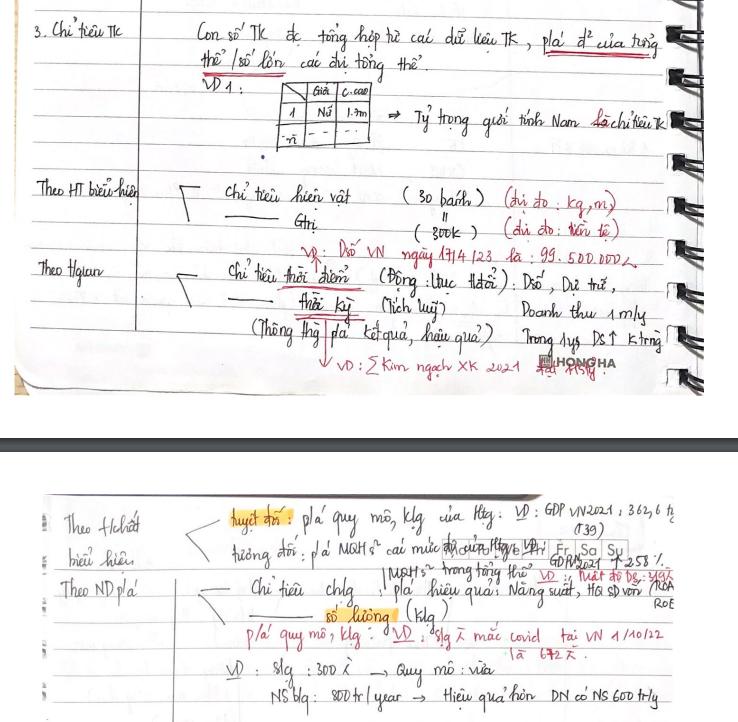 3. Chỉ tiêu TK
Con số TK đc tổng hợp từ các dữ liệu TK, p/á đ² của từng
thể / số lớn các đvị tổng thể.
VD1:
Giới C.cao
1 Nữ 1.7m
n - - -
→ Tỷ trọng giới tính Nam là chỉ tiêu TK
Theo HT biểu hiện
Chỉ tiêu hiện vật (30 bánh) (đvị đo: kg, m)
——— Gtrị (300k) (đvị đo: tiền tệ)
VD: Dsố VN ngày 17/4/23 là: 99.500.000
Theo tgian
Chỉ tiêu thời điểm (Động: Dsố, Dự trữ,
——— thời kỳ (Tích luỹ) Doanh thu 1 m/y
(Thông thg p/á kết quả, hậu quả) Trong 1 DS↑
VD: ∑Kim ngạch XK 2021
HONG HA
Theo t/chất
biểu hiện
tuyệt đối: p/á quy mô, klg của Htg: VD: GDP VN2021: 362,6 tỷ
(T39)
tương đối: p/á MQH s² các mức độ của Htg VD:
Fr Sa Su
GDP 2021 ↑ 258%
MQH s² trong tổng thể VD: mật độ DS:
Theo ND p/á
Chỉ tiêu chlg: p/á hiệu quả: Năng suất, HQ SD vốn (ROA
ROE
——— số lượng (klg)
p/á quy mô, klg: VD: slg mắc covid tại VN 1/10/22
là 672
VD: Slg: 300 → Quy mô: vừa
NS blg: 800tr/year → Hiệu quả hơn DN có NS 600tr/y